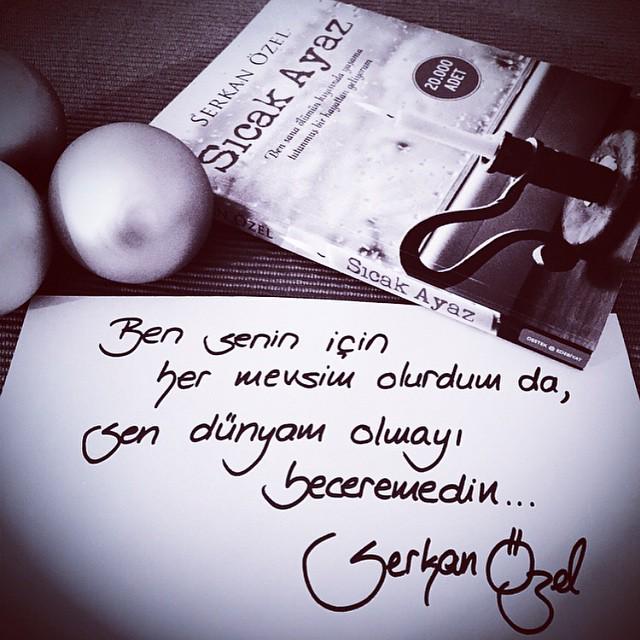 SERKAN ÖZEL
Sıcak Ayaz
Ben sana ölümün kıyısında yaşama
tutunmuş bir hayattan geliyorum
20.000
ADET
N ÖZEL
Sıcak Ayaz
DESTEK EDEBİYAT
Ben senin için
her mevsim olurdum da,
sen dünyam olmayı
beceremedin...
Serkan Özel